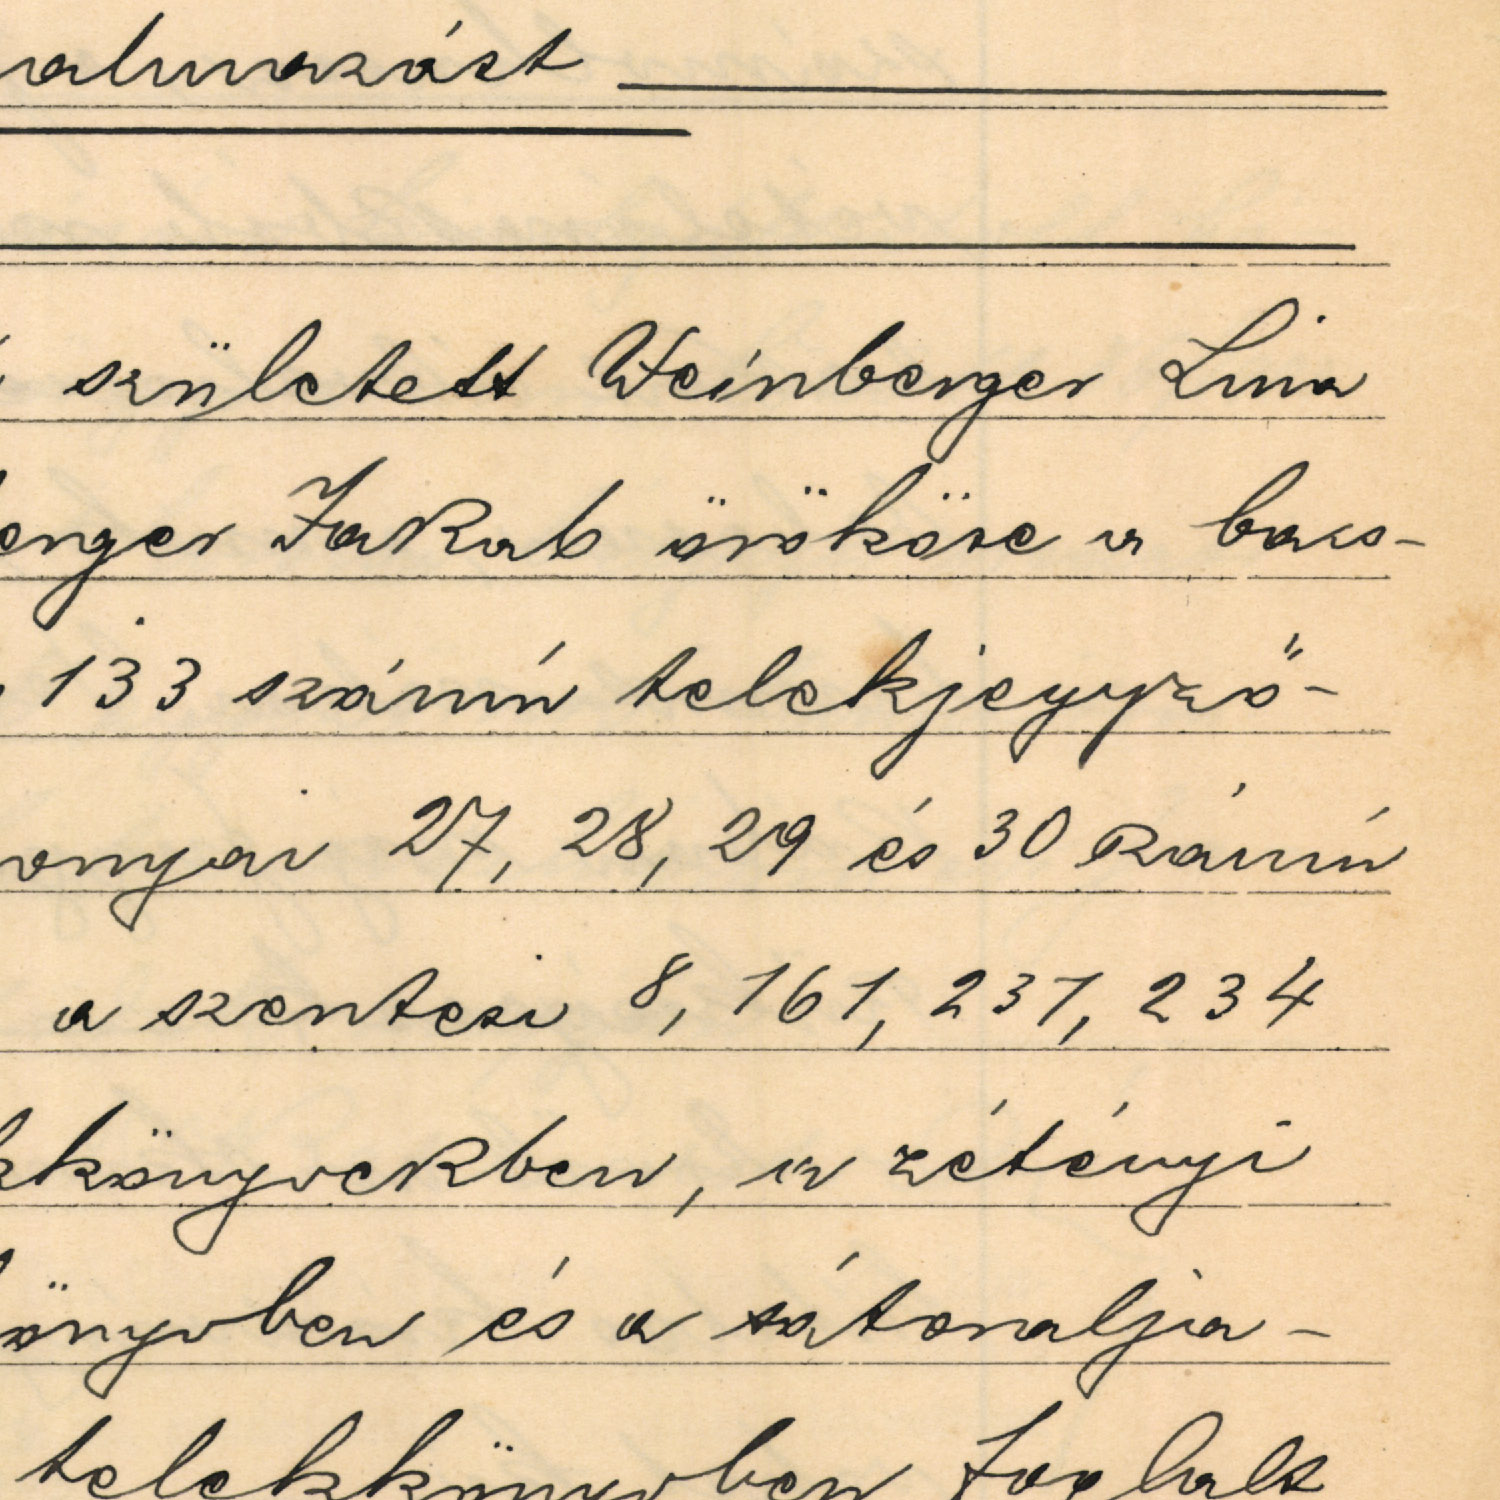 almazást
született Weinberger Lina
erger Jakab örököse a bacs-
133 számú telekjegyző-
onyai 27, 28, 29 és 30 számú
a szentesi 8, 161, 231, 234
kkönyvekben, a zétényi
önyvben és a sátoralja-
telekkönyvben foglalt